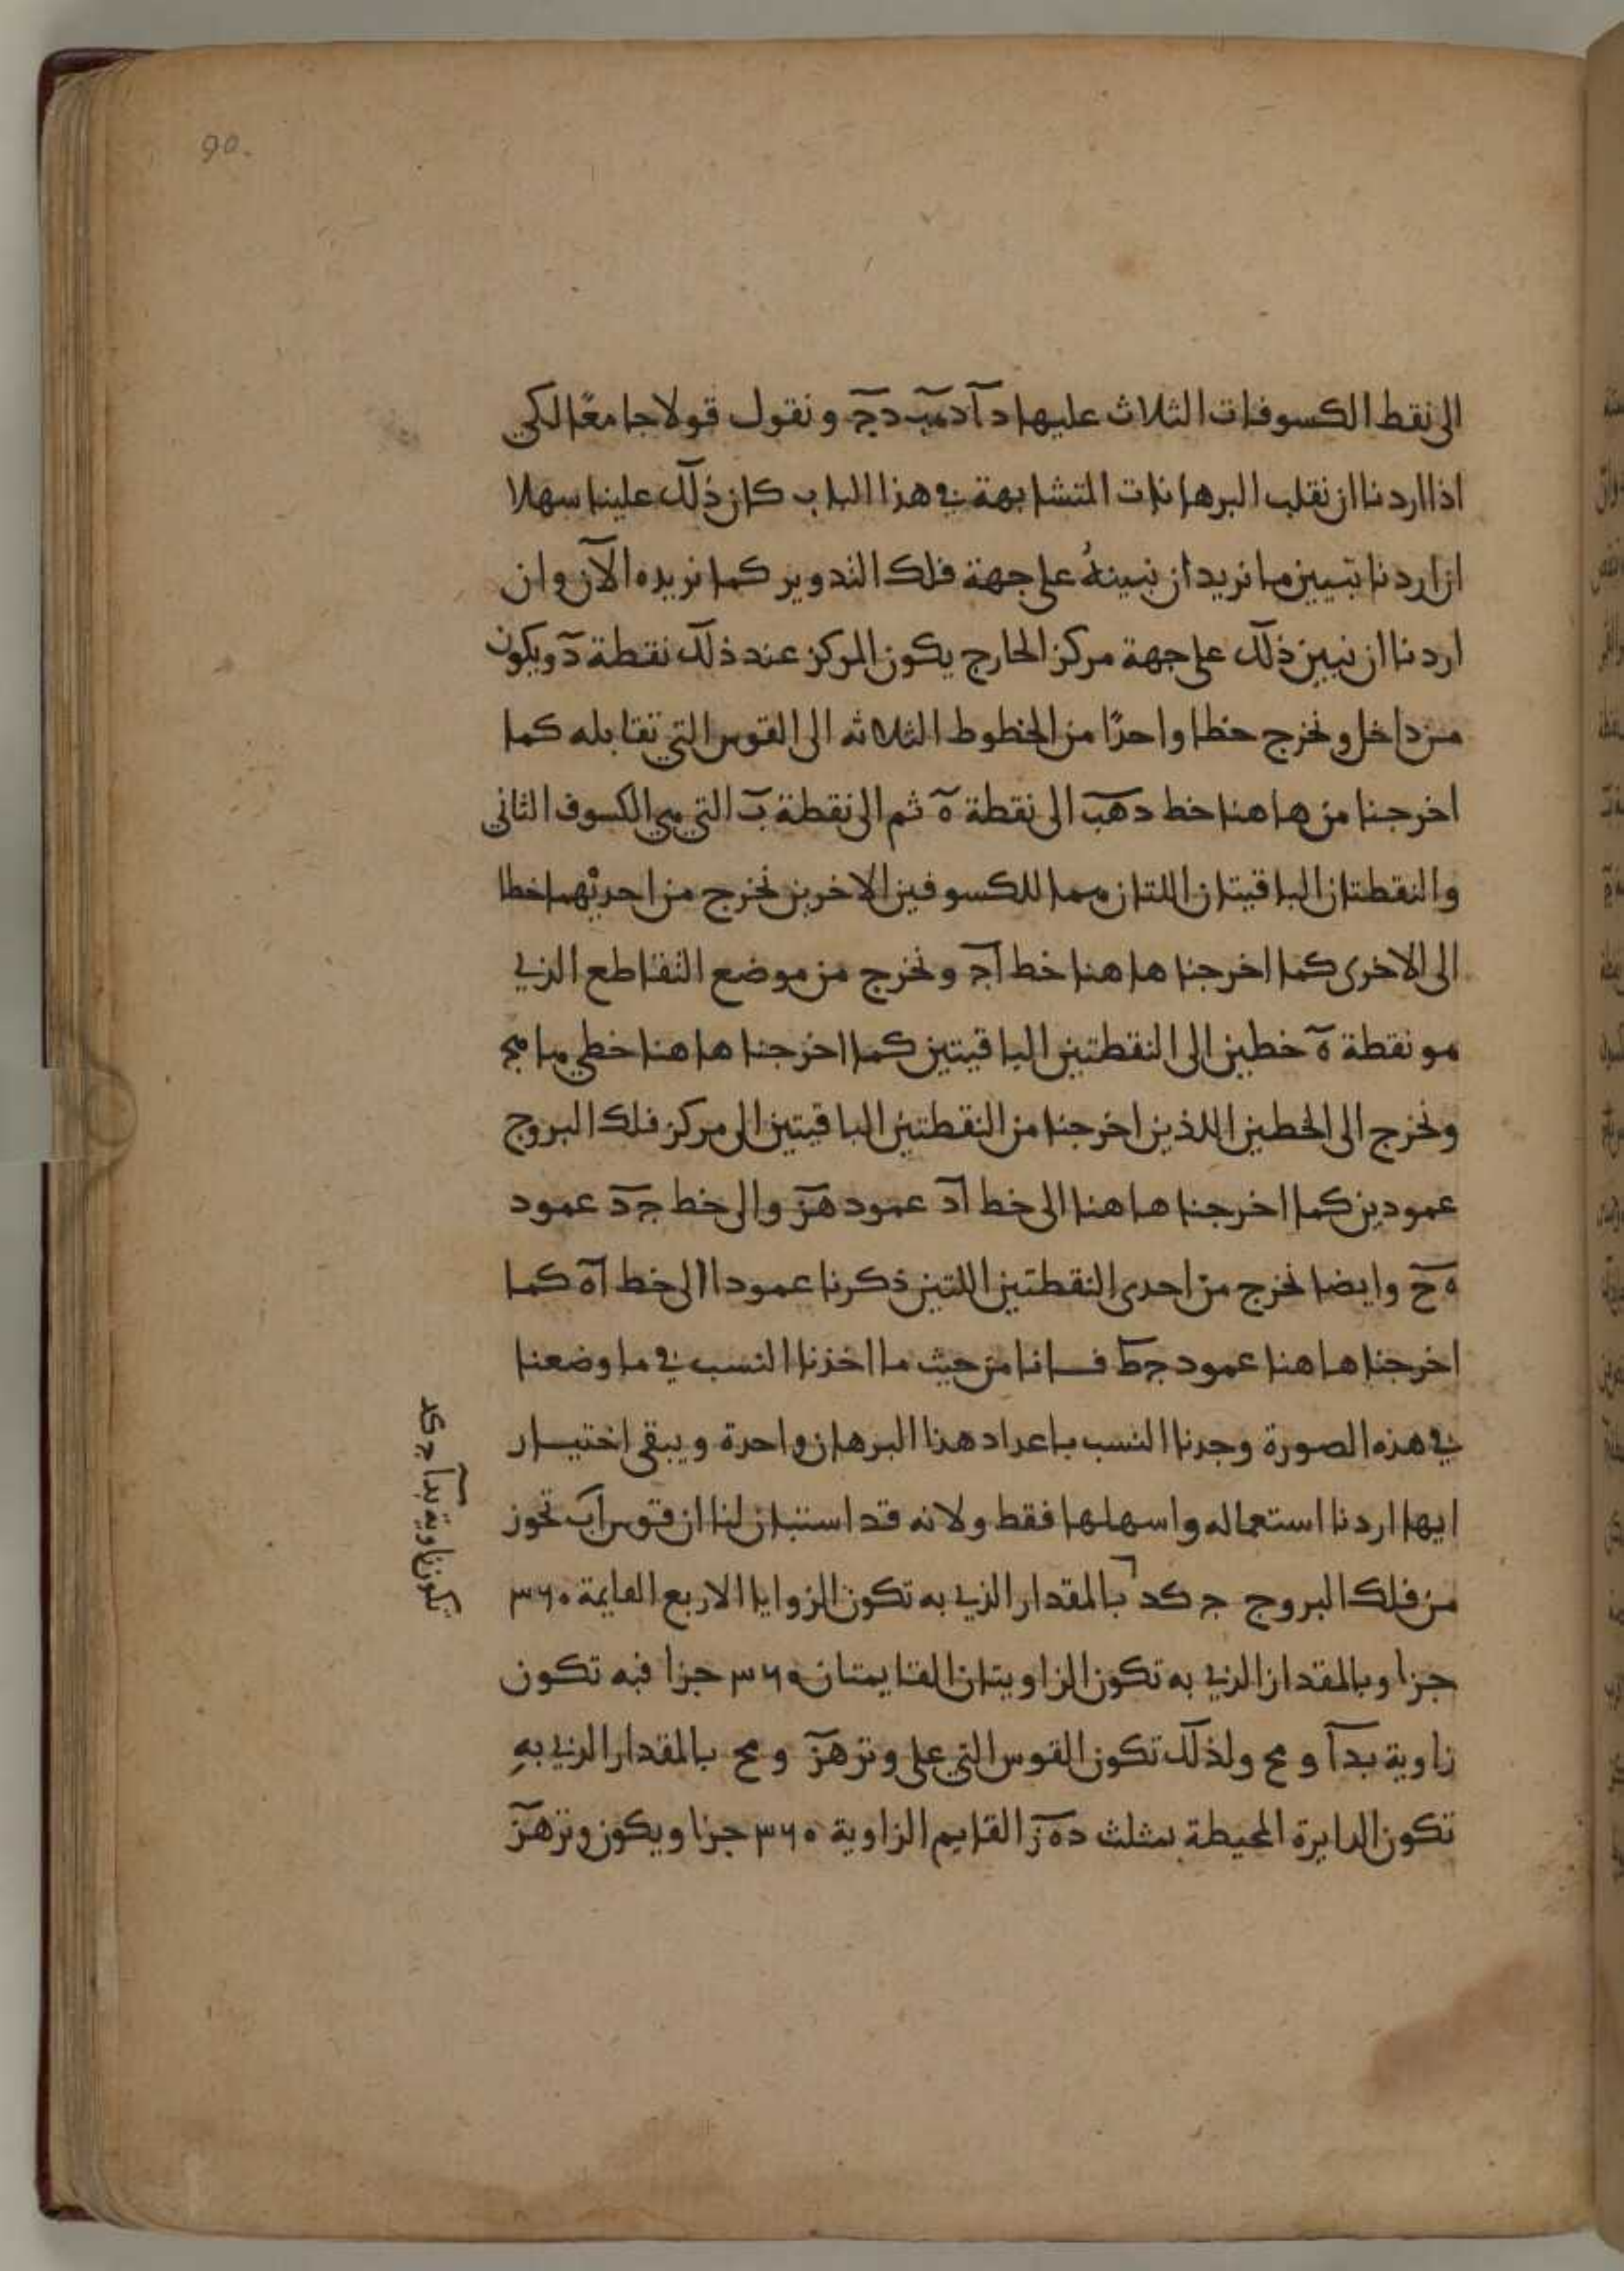 90.
الى نقط الكسوفات الثلاث عليها دآ دهب دج ونقول قولا جامعا لكي
اذا اردنا ان نقلب البرهانات المتشابهة في هذا الباب كان ذلك علينا سهلا
ان اردنا تبيين ما نريد ان نبينه على جهة فلك التدوير كما نريده الآن وان
اردنا ان نبين ذلك على جهة مركز الخارج يكون المركز عند ذلك نقطة د ويكون
من داخل ونخرج خطا واحدا من الخطوط الثلاثه الى القوس التي تقابله كما
اخرجنا من هاهنا خط دهب الى نقطة ه ثم الى نقطة ب التي هي الكسوف الثاني
والنقطتان الباقيتان اللتان هما للكسوفين الاخرين نخرج من احديهما خطا
الى الاخرى كما اخرجنا هاهنا خط اج ونخرج من موضع التقاطع الذي
هو نقطة ه خطين الى النقطتين الباقيتين كما اخرجنا هاهنا خطي ها هج
ونخرج الى الخطين اللذين اخرجنا من النقطتين الباقيتين الى مركز فلك البروج
عمودين كما اخرجنا هاهنا الى خط اد عمود هز والى خط جد عمود
ه ح وايضا نخرج من احدى النقطتين اللتين ذكرنا عمودا الى خط اه كما
اخرجنا هاهنا عمود جط فانا من حيث ما اخذنا النسب في ما وضعنا
في هذه الصورة وجدنا النسب باعداد هذا البرهان واحدة ويبقى اختيار
ايها اردنا استعماله واسهلها فقط ولانه قد استبان لنا ان قوس اب تحوز
من فلك البروج ج كد بالمقدار الذي به تكون الزوايا الاربع القايمة ٣٦٠
جزا وبالمقدار الذي به تكون الزاويتان القايمتان ٣٦٠ جزا فبه تكون
زاوية بدآ و مح ولذلك تكون القوس التي على وتر هز و مح بالمقدار الذي به
تكون الدايرة المحيطة بمثلث ده ز القايم الزاوية ٣٦٠ جزا ويكون وتر هز
تكون زاوية بدآ ج كد